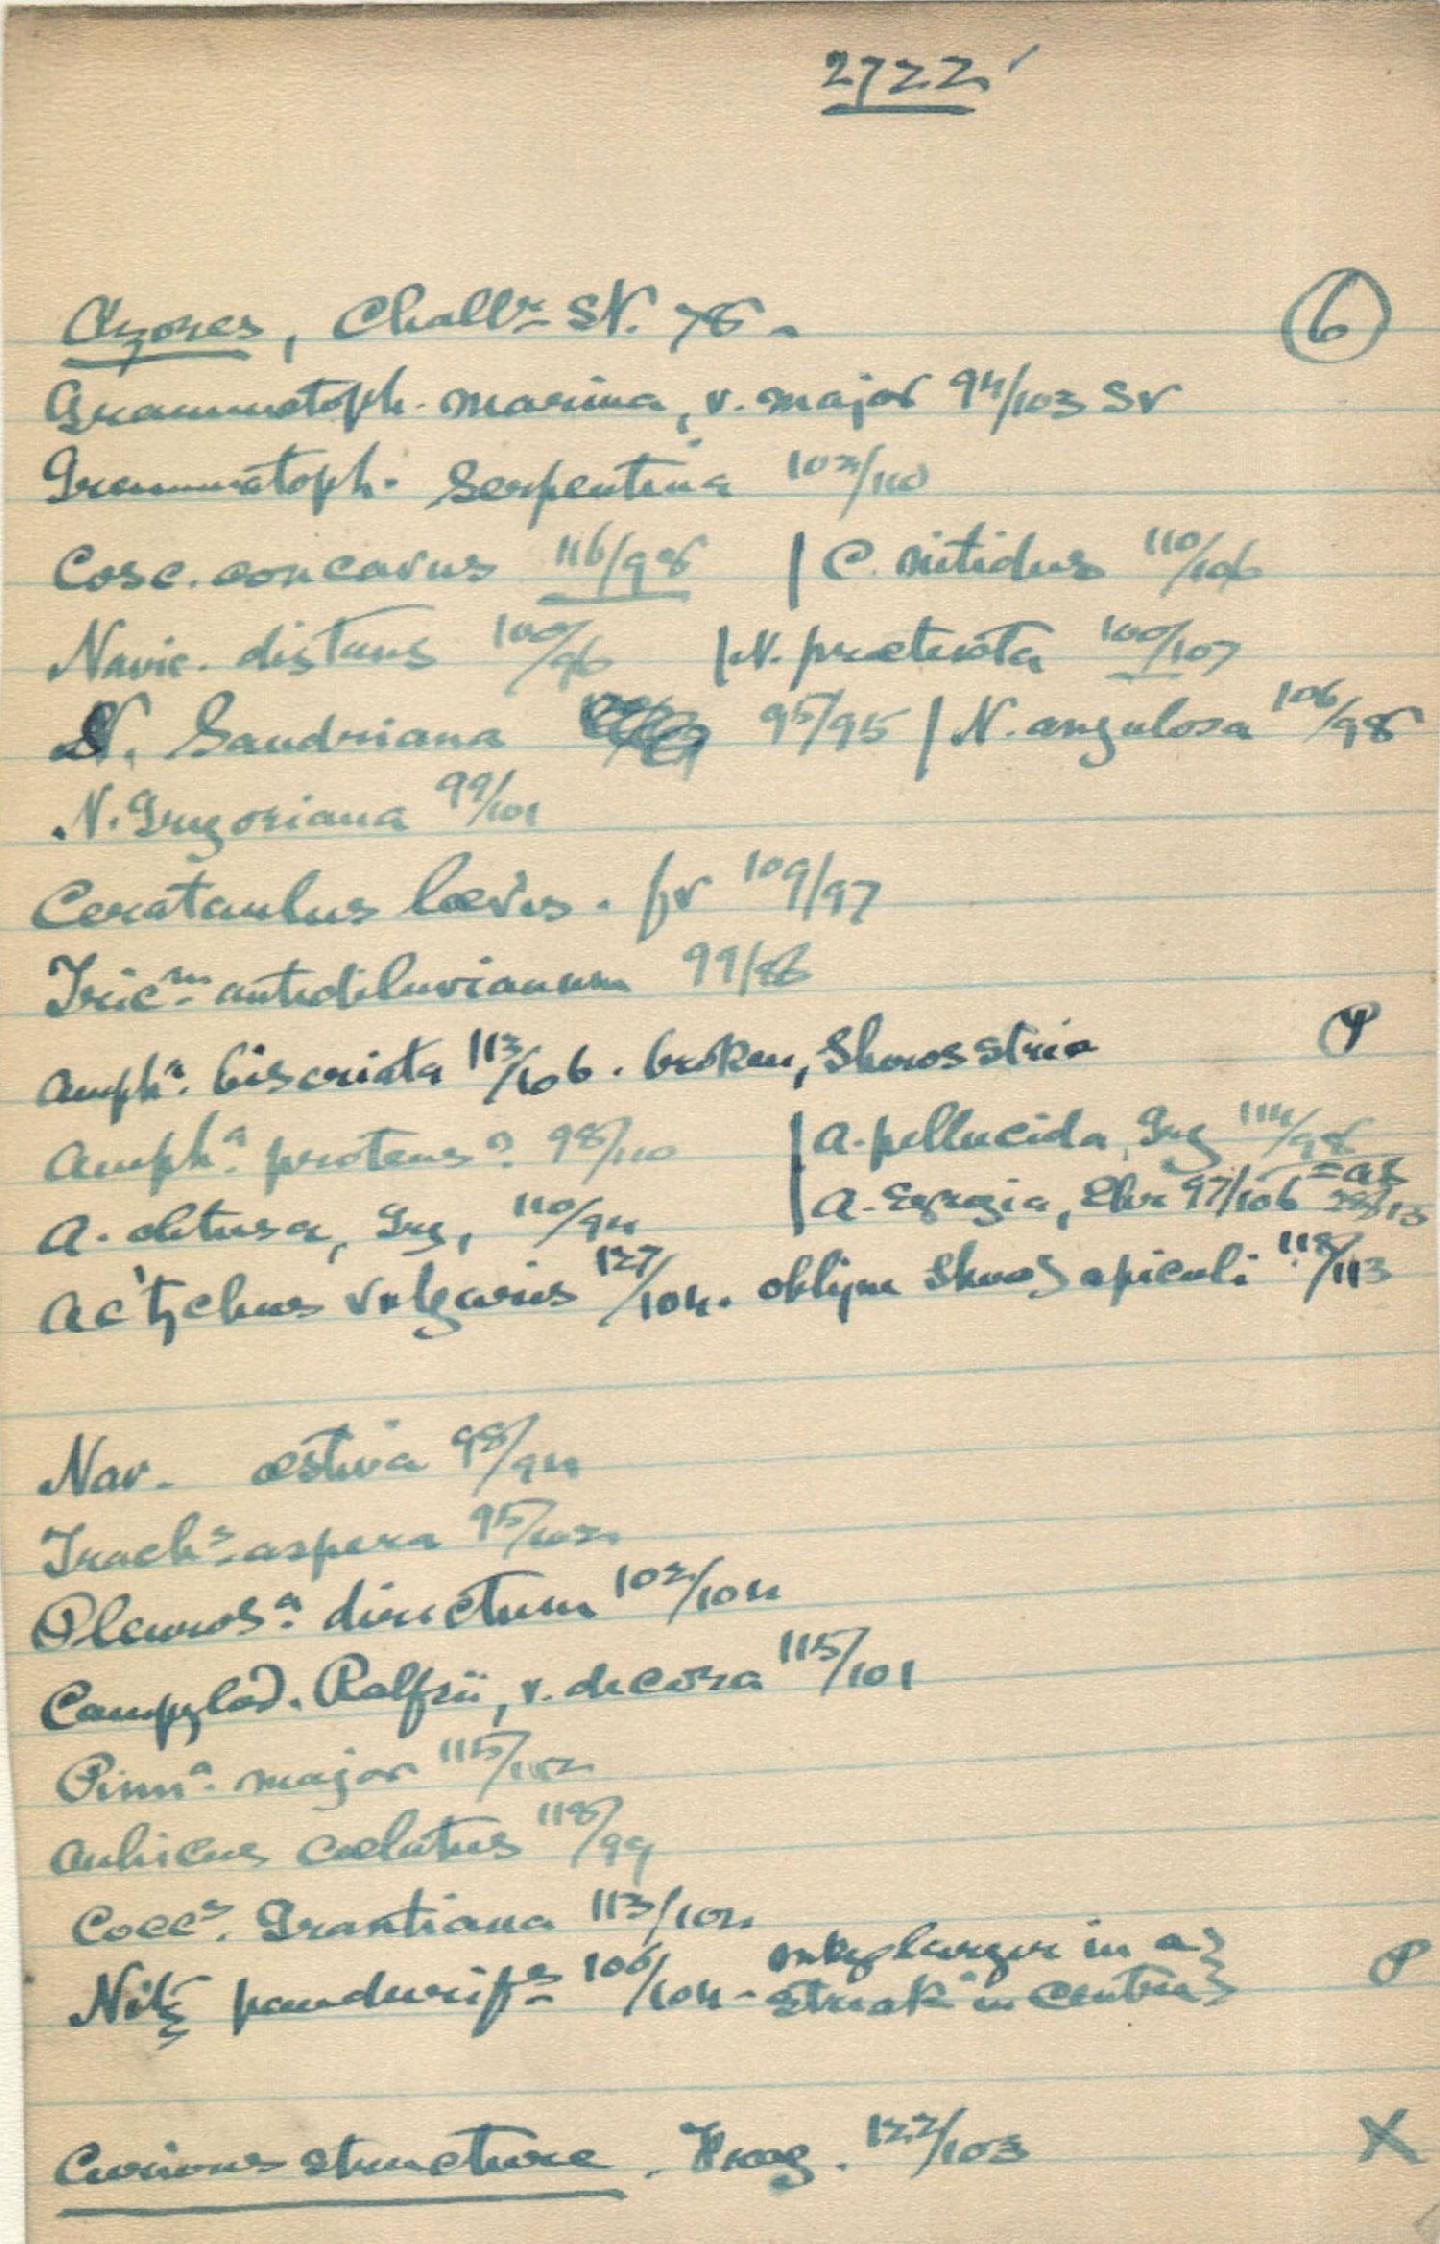 2722
Azores, Challr St. 78. 6
Grammatoph. marina, v. major 94/103 Sv
Grammatoph. Serpentina 102/110
Cosc. concavus 116/98 | C. nitidus 110/106
Navic. distans 100/96 | N. prætexta 100/107
N. Sandriana 95/95 | N. angulosa 106/98
N. Gregoriana 99/101
Cerataulus lævis. fr 109/97
Tricm. antediluvianum 99/88
Ampha. biseriata 113/106. broken, Shows striæ P
Ampha. proteus? 98/110 | A. pellucida, Grg 114/98
A. obtusa, Grg, 110/94 | A. Egregia, Ehr 97/106
Actychus vulgaris 127/104. Shows apiculi 118/113
Nav. æstiva 98/94
Trachs. aspera 95/102
Pleurosa. directum 102/104
Campylod. Ralfsii, v. decora 115/101
Pinna. major 115/102
Aulicus cælatus 118/99
Coccs. Grantiana 113/104
Nitz pandurifs. 106/104 - larger in a P
streak in centre
Curious structure. Frag. 122/103 X